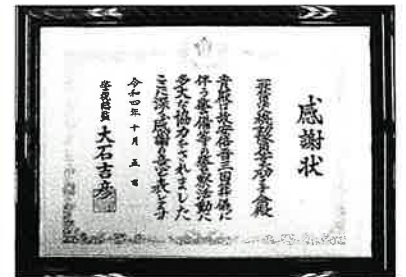 感謝状
貴殿は故安倍晋三国葬儀に
伴う警備等の警察活動に
多大な協力をされました
ここに深く感謝の意を表します
令和四年十月五日
警視総監 大石吉彦